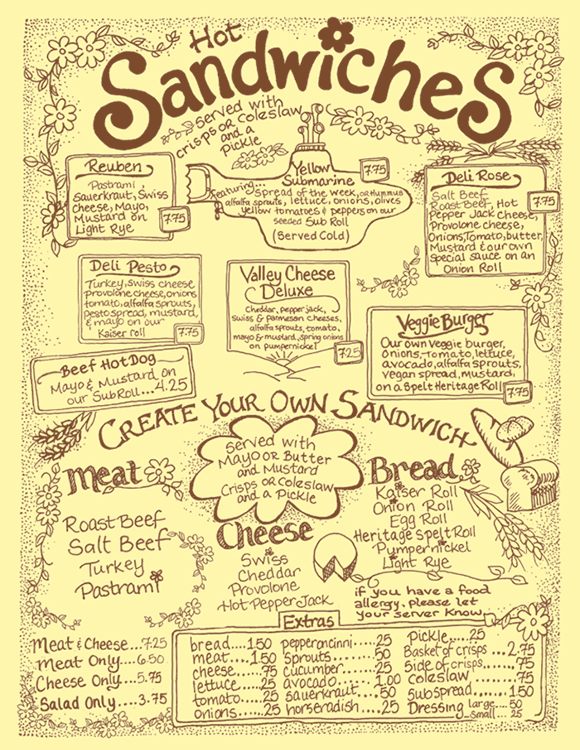 Hot
Sandwiches
served with
crisps or coleslaw
and a
pickle
Reuben
Pastrami,
Sauerkraut, Swiss
Cheese, Mayo,
Mustard on
Light Rye
7.75
Yellow
Submarine
7.75
Featuring
Spread of the week, or Hummus
alfalfa sprouts, lettuce, onions, olives
yellow tomatoes & peppers on our
seeded Sub Roll
(Served Cold)
Deli Rose
Salt Beef
Roast Beef, Hot
Pepper Jack Cheese
Provolone cheese,
Onions, Tomato, butter,
Mustard & our own
special sauce on an
Onion Roll
7.75
Deli Pesto
Turkey, Swiss cheese
provolone cheese, onions
tomato, alfalfa sprouts,
pesto spread, mustard,
& mayo on our
Kaiser roll
7.75
Valley Cheese
Deluxe
Cheddar, pepper jack,
Swiss & Parmesan cheeses,
alfalfa sprouts, tomato,
mayo & mustard, spring onions
on pumpernickel
7.25
Veggie Burger
Our own Veggie burger,
onions, tomato, lettuce,
avocado, alfalfa sprouts,
vegan spread, mustard,
on a Spelt Heritage Roll
7.75
Beef Hot Dog
Mayo & Mustard on
our Sub Roll...4.25
Create Your Own Sandwich
Served with
Mayo or Butter
and Mustard
Crisps or Coleslaw
and a Pickle
Meat
Roast Beef
Salt Beef
Turkey
Pastrami
Cheese
Swiss
Cheddar
Provolone
Hot Pepper Jack
Bread
Kaiser Roll
Onion Roll
Egg Roll
Heritage Spelt Roll
Pumpernickel
Light Rye
if you have a food
allergy, please let
your server know
Meat & Cheese...7.25
Meat Only....6.50
Cheese Only....5.75
Salad Only....3.75
Extras
bread....1.50
meat....1.50
cheese.....75
lettuce.....25
tomato.....25
onions....25
pepperoncini...25
sprouts.......50
cucumber.....25
avocado......1.00
sauerkraut...50
horseradish...25
Pickle.....25
Basket of crisps...2.75
Side of crisps......75
coleslaw......75
sub spread......1.50
Dressing large...50
small...25